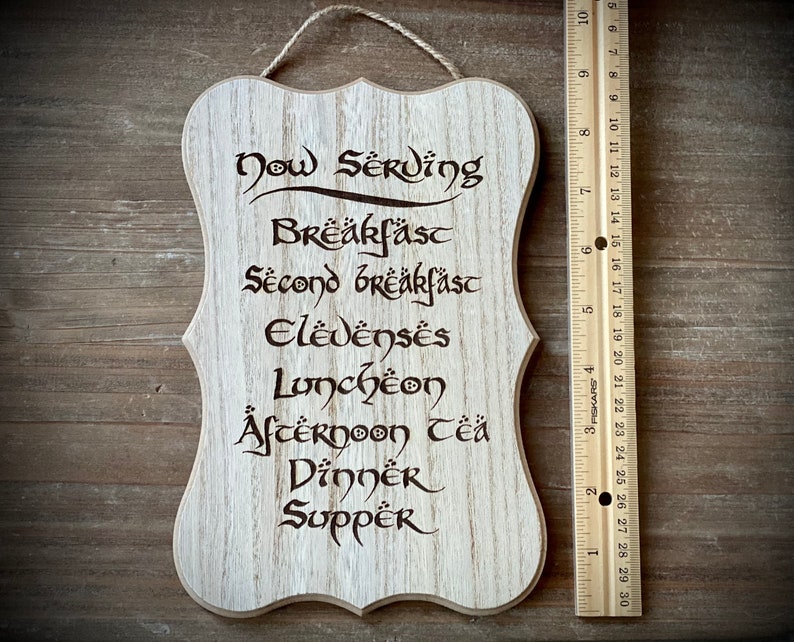 Now Serving
Breakfast
Second breakfast
Elevenses
Luncheon
Afternoon Tea
Dinner
Supper
10
9
8
7
6
5
4
3
2
1
FISKARS
5
6
7
8
9
10
11
12
13
14
15
16
17
18
19
20
21
22
23
24
25
26
27
28
29
30